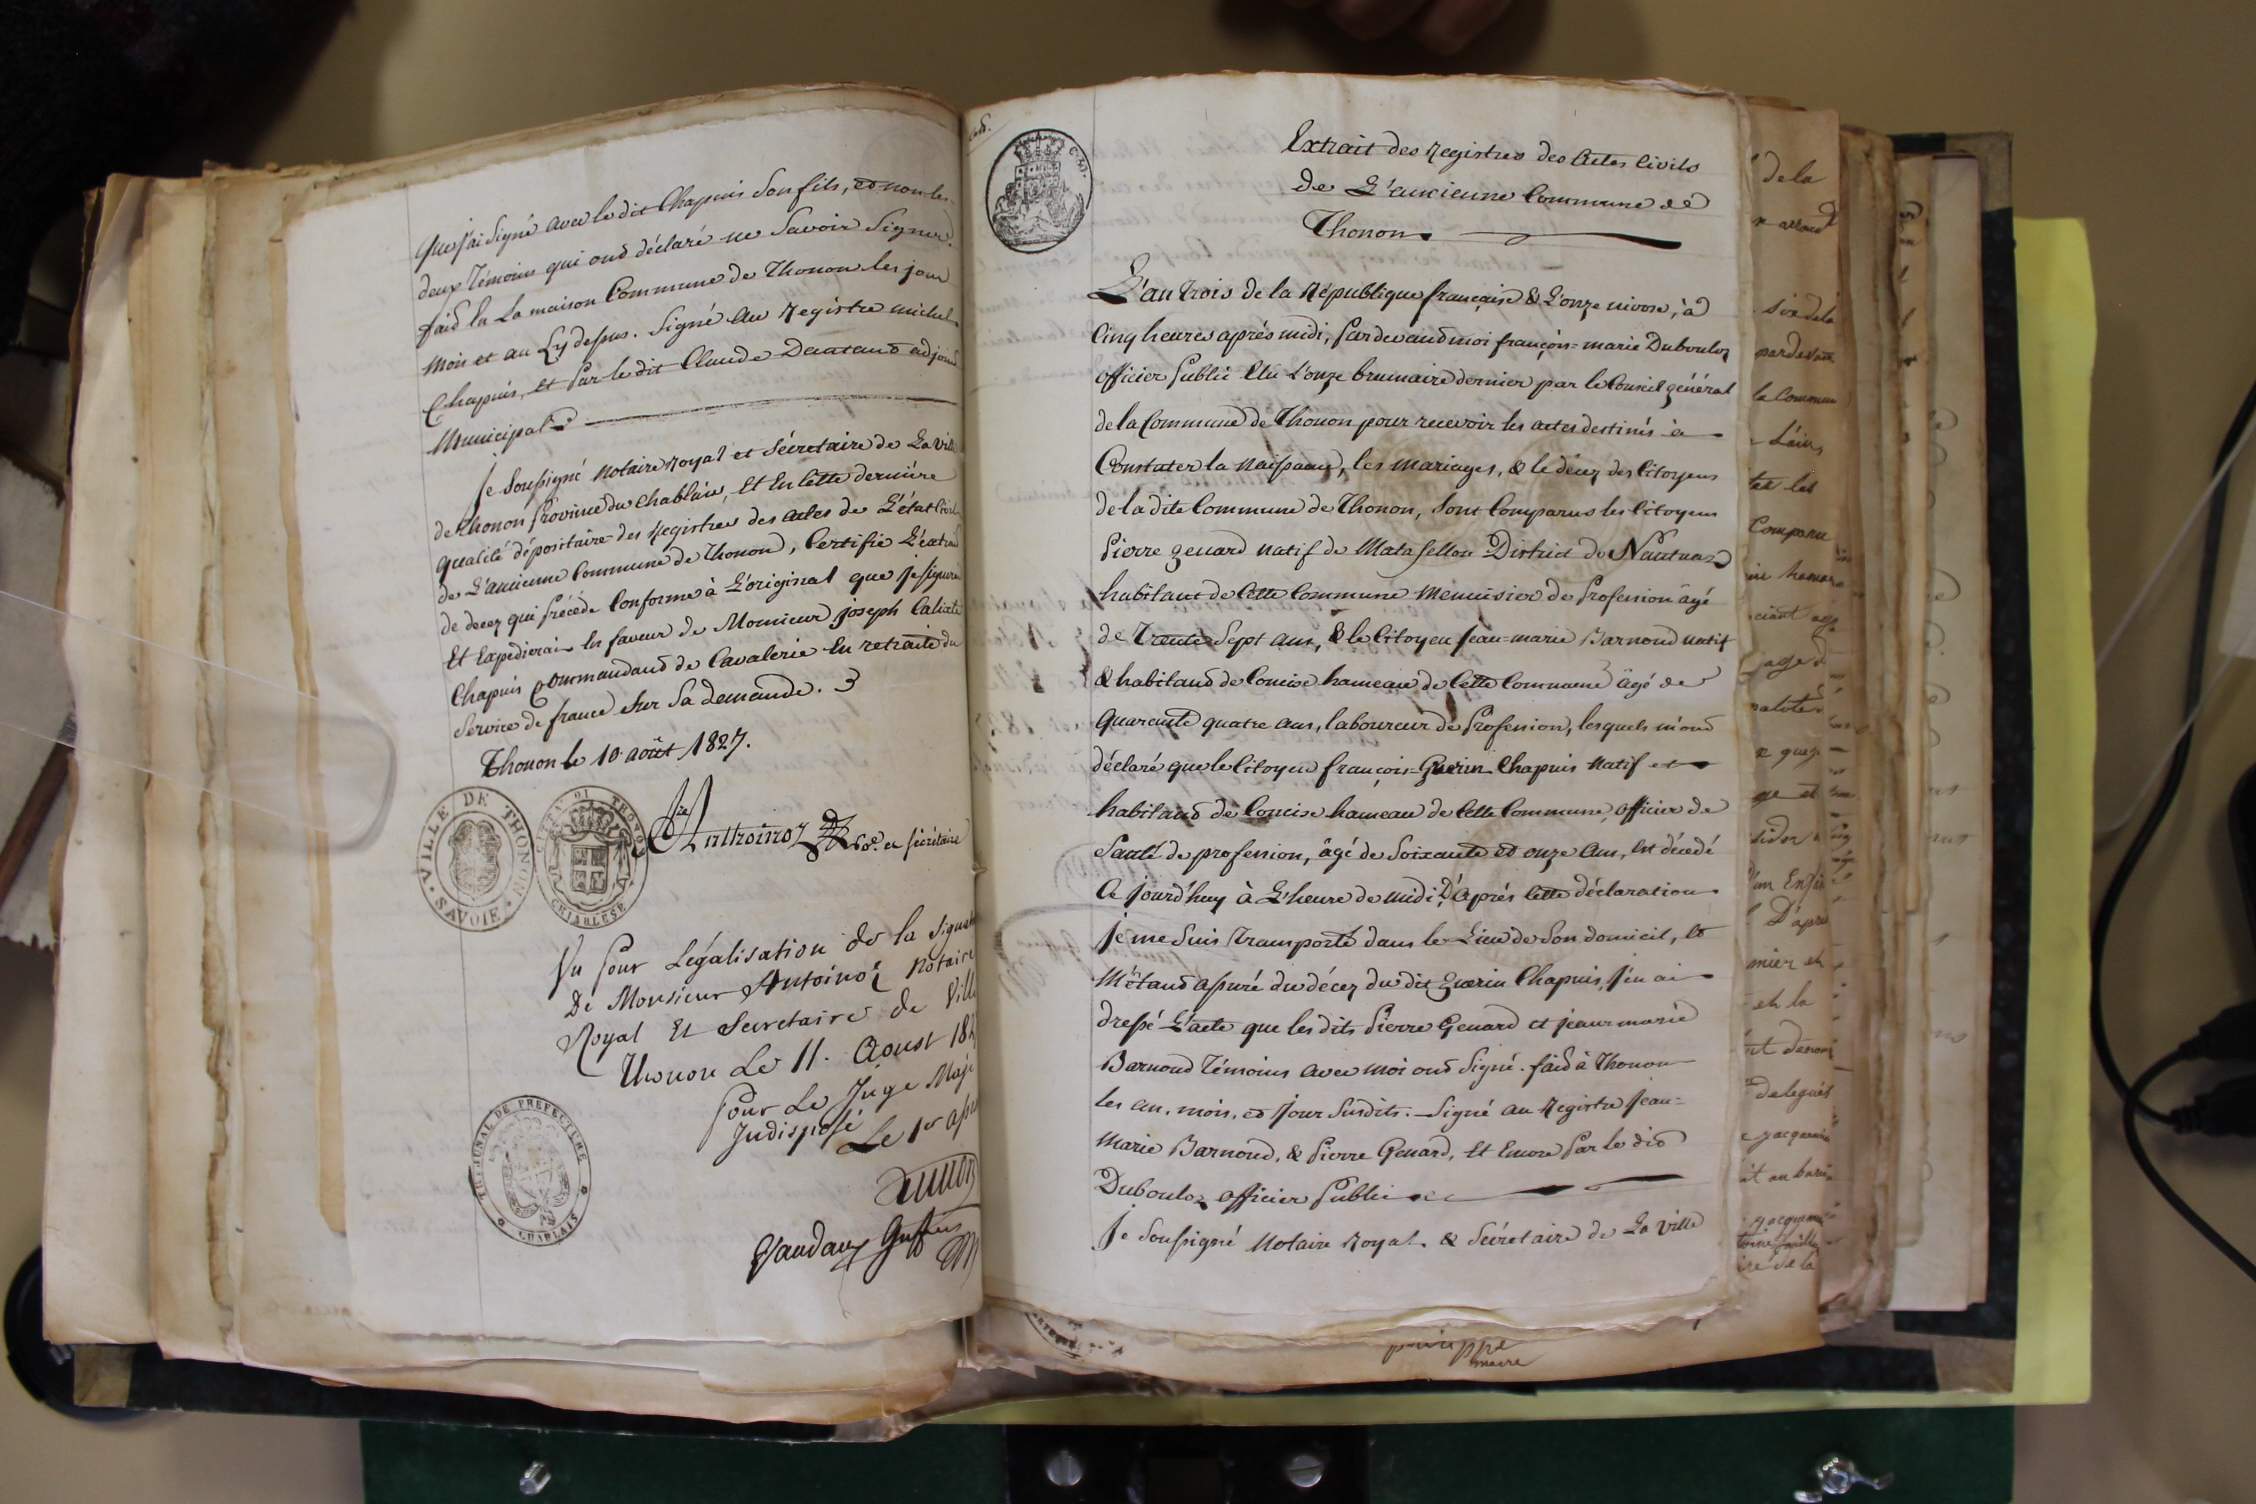 que j'ai Signé avec le dit Chapuis Son fils, et non les
deux Témoins qui ont déclaré ne Savoir Signer.
faid la La maison Commune de Thonon les jour
mois et an Cy dessus. Signé au Registre michel
Chapuis, et par le dit Claude Dantand adjoint
Municipal
je Soussigné Notaire Royal et Sécretaire de La Ville
de Thonon province du Chablais, Et En Cette dernière
qualité dépositaire des Registres des actes de L'état Civil
de L'ancienne Commune de Thonon, Certifie L'extrait
de decez qui précéde Conforme à L'original que je signerai
Et Expedierai En faveur de Monsieur joseph Calixte
Chapuis Commandand de Cavalerie En retraite du
Service de france Sur Sa demande.
Thonon le 10 août 1827.
VILLE DE THONON
SAVOIE
CHIABLESE
Anthoinoz Not.e et Sécrétaire
Vu pour Légalisation de la Signature
De Monsieur Antoinoz Notaire
Royal Et Secretaire de Ville
Thonon Le 11. Aoust 18
pour Le Juge Maje
Indisposé
Le 1er
TRIBUNAL DE PREFECTURE
CHABLAIS
Extrait des Registres des Actes Civils
de L'ancienne Commune de
Thonon
L'an trois de la République française & L'onze nivose, à
Cinq heures après midi, pardevand moi françois=marie Dubouloz
officier public Elu L'onze brumaire dernier par le Conseil général
de la Commune de Thonon pour recevoir les actes destinés à
Constater la Naissance, les mariages, & le décez des Citoyens
de la dite Commune de Thonon, Sont Comparus les Citoyens
Pierre genard natif de Matafellon District de Nantuaz
habitant de Cette Commune Menuisier de Profession âgé
de Trente Sept ans, & le Citoyen Jean=marie Barnoud natif
& habitand de Concise hameau de Cette Commune âgé de
quarente quatre ans, laboureur de Profession, lesquels m'ont
déclaré que le Citoyen françois=Guerin Chapuis Natif et
habitand de Concise hameau de Cette Commune, officier de
Santé de profession, âgé de Soixante et onze ans, Est décédé
Ce jourd'huy à L'heure de midi; D'après Cette déclaration
je me Suis Transporté dans le Lieu de Son domicil, Et
M'étand assuré du décez du dit guerin Chapuis, j'en ai
dressé L'acte que les dits Pierre Genard et jean marie
Barnoud Témoins avec moi ont Signé. faid à Thonon
les an, mois, et jour Susdits. Signé au Registre Jean=
Marie Barnoud, & Pierre Genard, Et Encore par le dit
Dubouloz officier Public
je Soussigné Notaire Royal & Sécretaire de La Ville
de la
six de la
pardevant
la Commun
Compare
D'apré
mier et
et la
delegués
philippe
maire